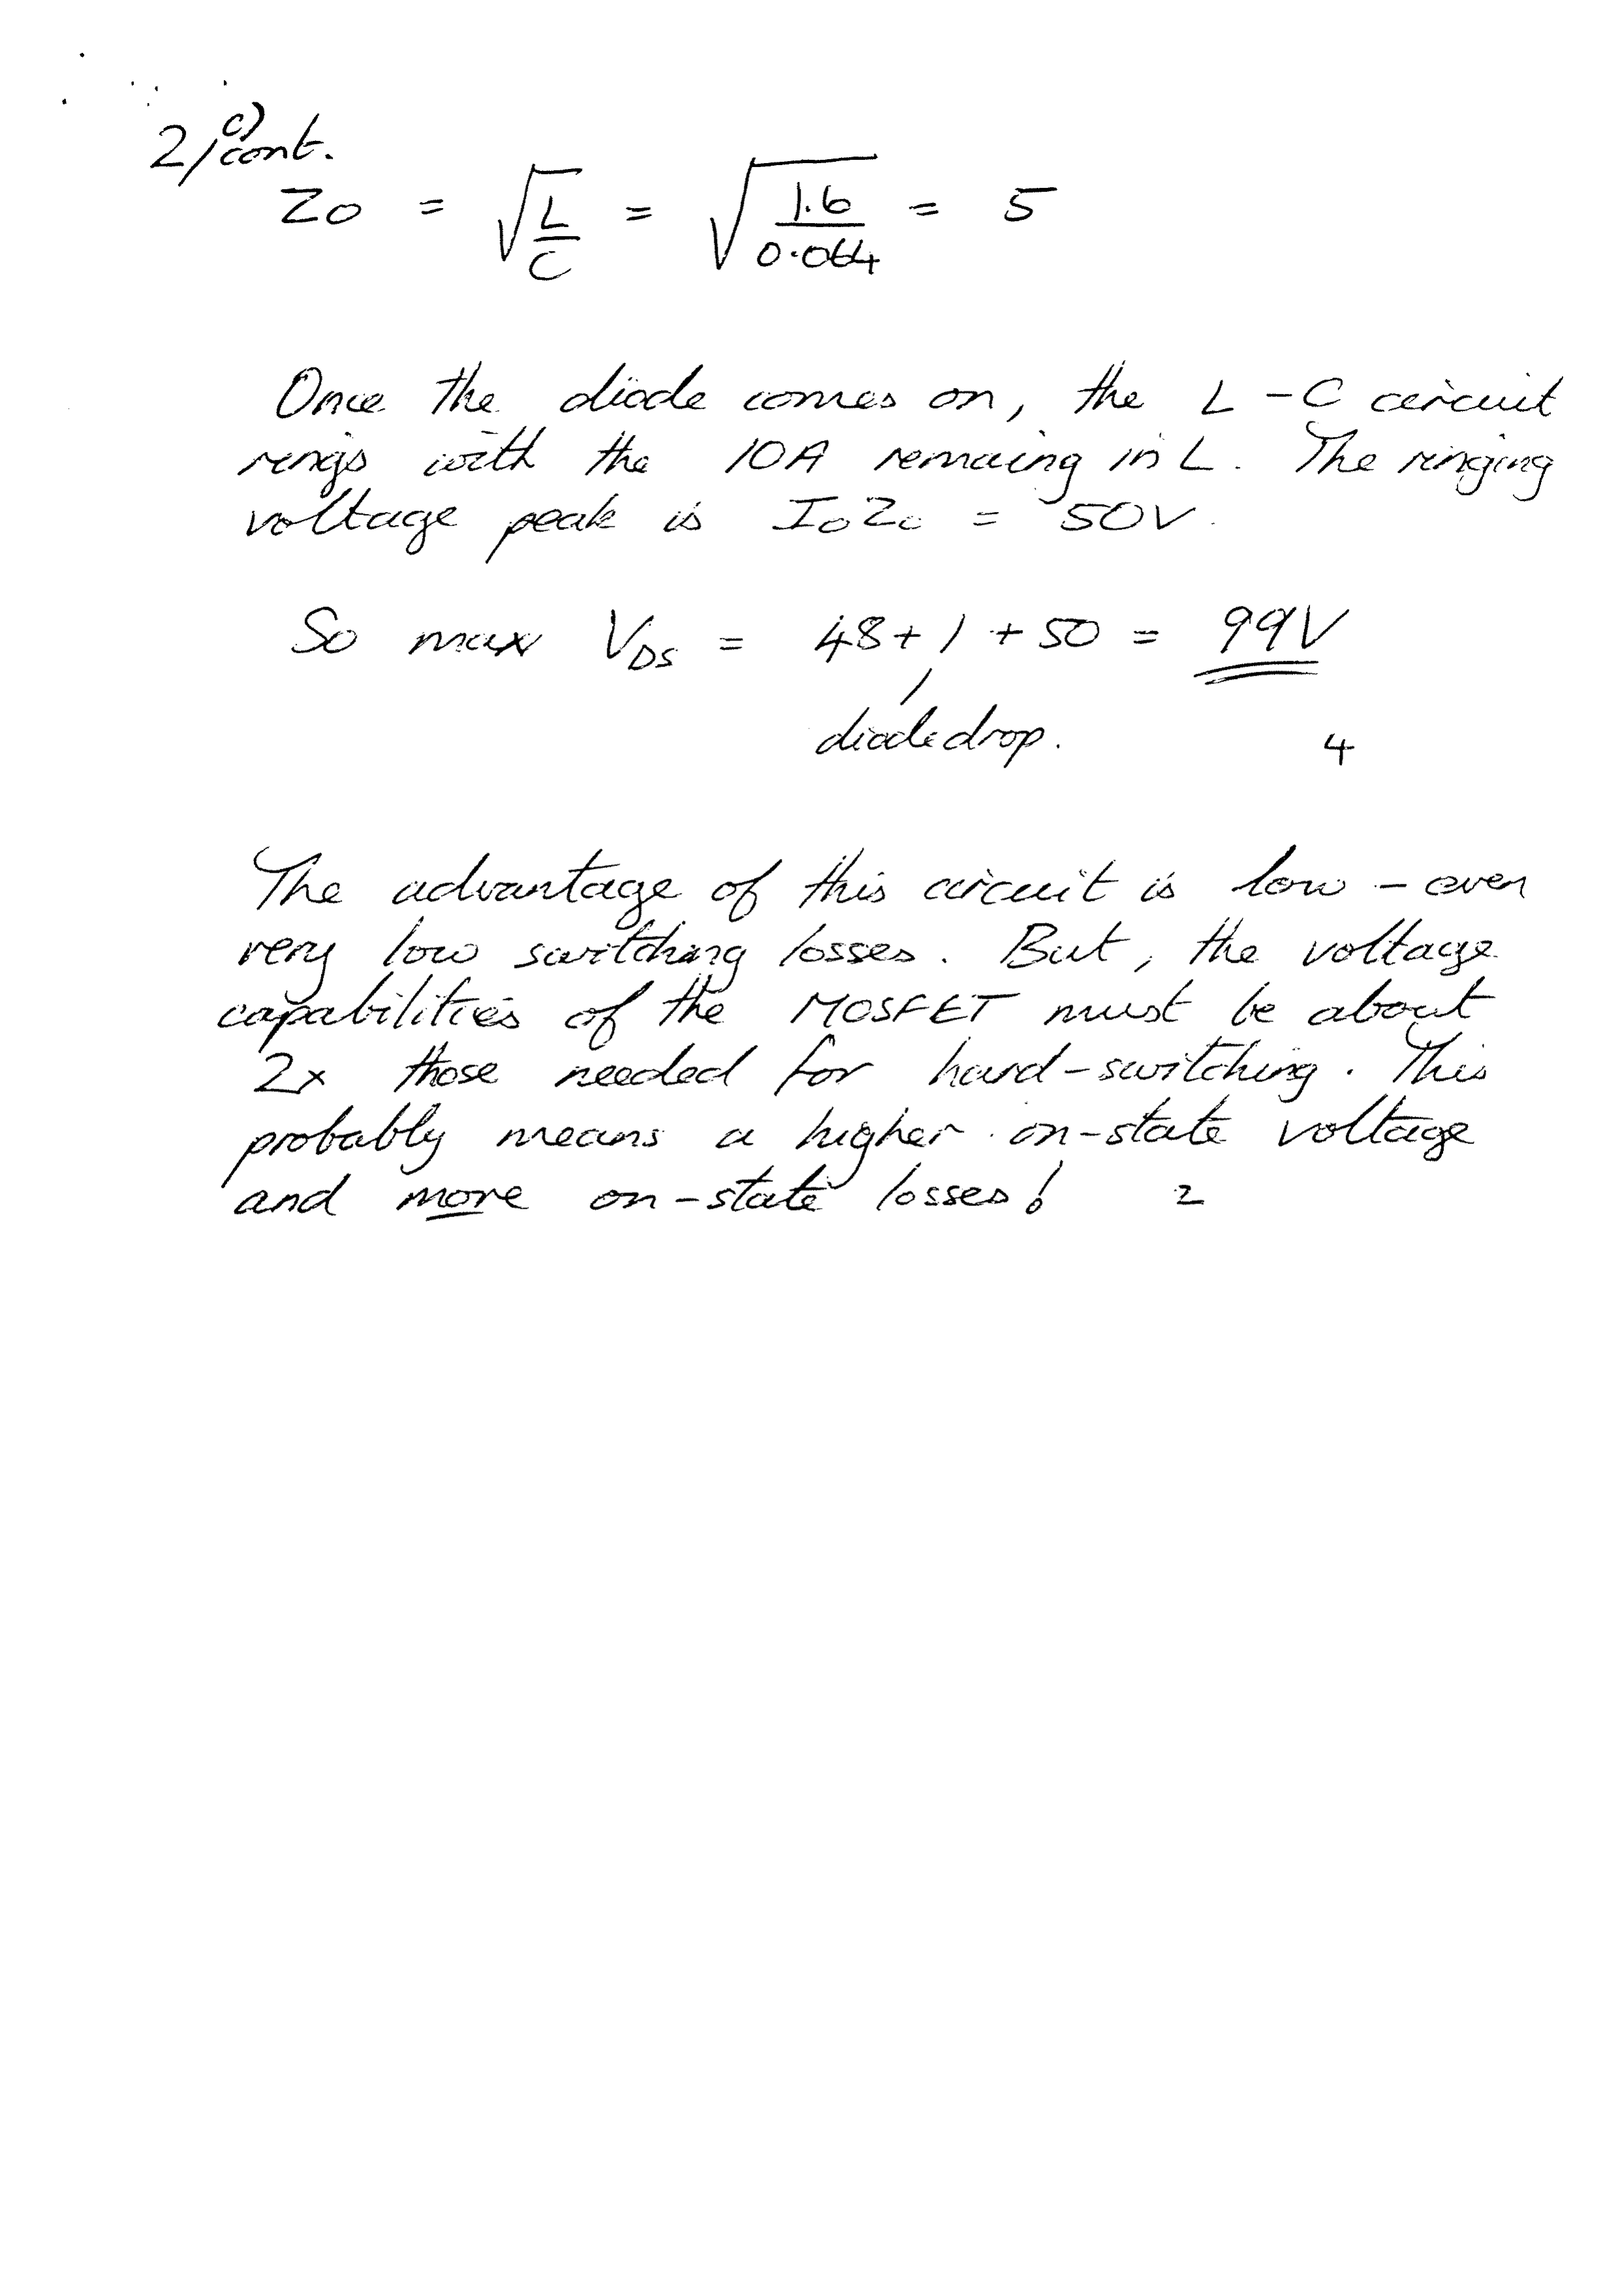 2/ c) cont.
Zo = √(L/C) = √(1.6/0.064) = 5
Once the diode comes on, the L-C circuit
rings with the 10A remaing in L. The ringing
voltage peak is IoZo = 50V.
So max VDS = 48 + 1 + 50 = 99V
diode drop.
4
The advantage of this circuit is low - even
very low switching losses. But, the voltage
capabilities of the MOSFET must be about
2x those needed for hard-switching. This
probably means a higher on-state voltage
and more on-state losses! 2